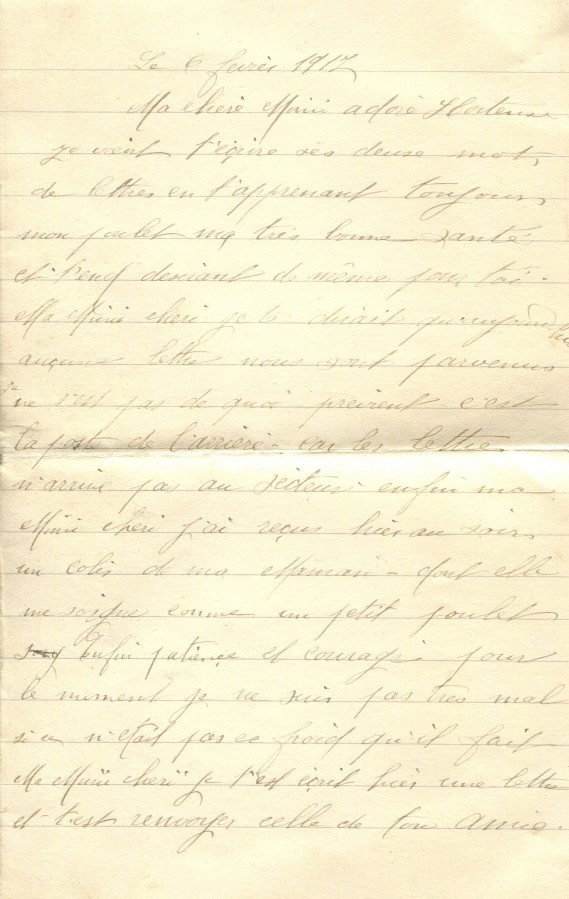 Le 6 fevrès 1917
Ma cherè Mimi adorè Hortense
je vient t'ecrire ses deuse mot
de lettres en t'apprenant toujours
mon poulet ma très bonne santé
et t'en desirant de même pour toi.
Ma Mimi cheri je te dirait qu'aujourd'hui
aucune lettre nous sont parvenus
je ne s'est pas de quoi previent c'est
la poste de l'arrière car les lettres
n'arrive pas au secteur enfin ma
Mimi cheri j'ai reçus hier au soir
un colis de ma Maman - dont elle
me soigne comme un petit poulet
Enfin patience et courage pour
le moment je ne suis pas très mal
si ce n'était pas ce froid qu'il fait
Ma Mimi cheri je t'est ecrit hier une lettre
et t'est renvoyer celle de ton amie.